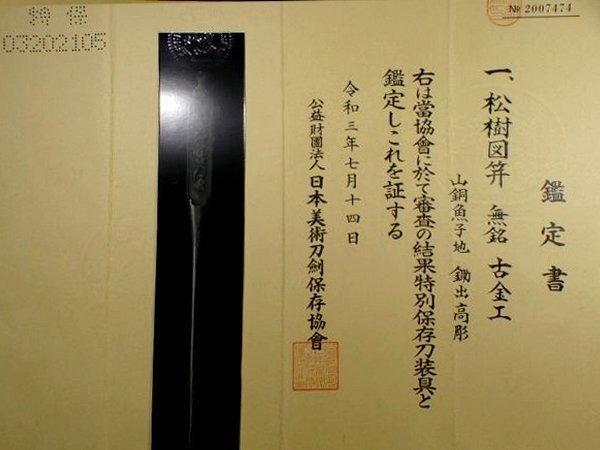 鑑定書
一、松樹図笄 無銘 古金工
山銅魚子地 鋤出高彫
右は當協會に於て審査の結果特別保存刀装具と
鑑定しこれを証する
令和三年七月十四日
公益財團法人 日本美術刀劍保存協會
№ 2007474
特保
03202105